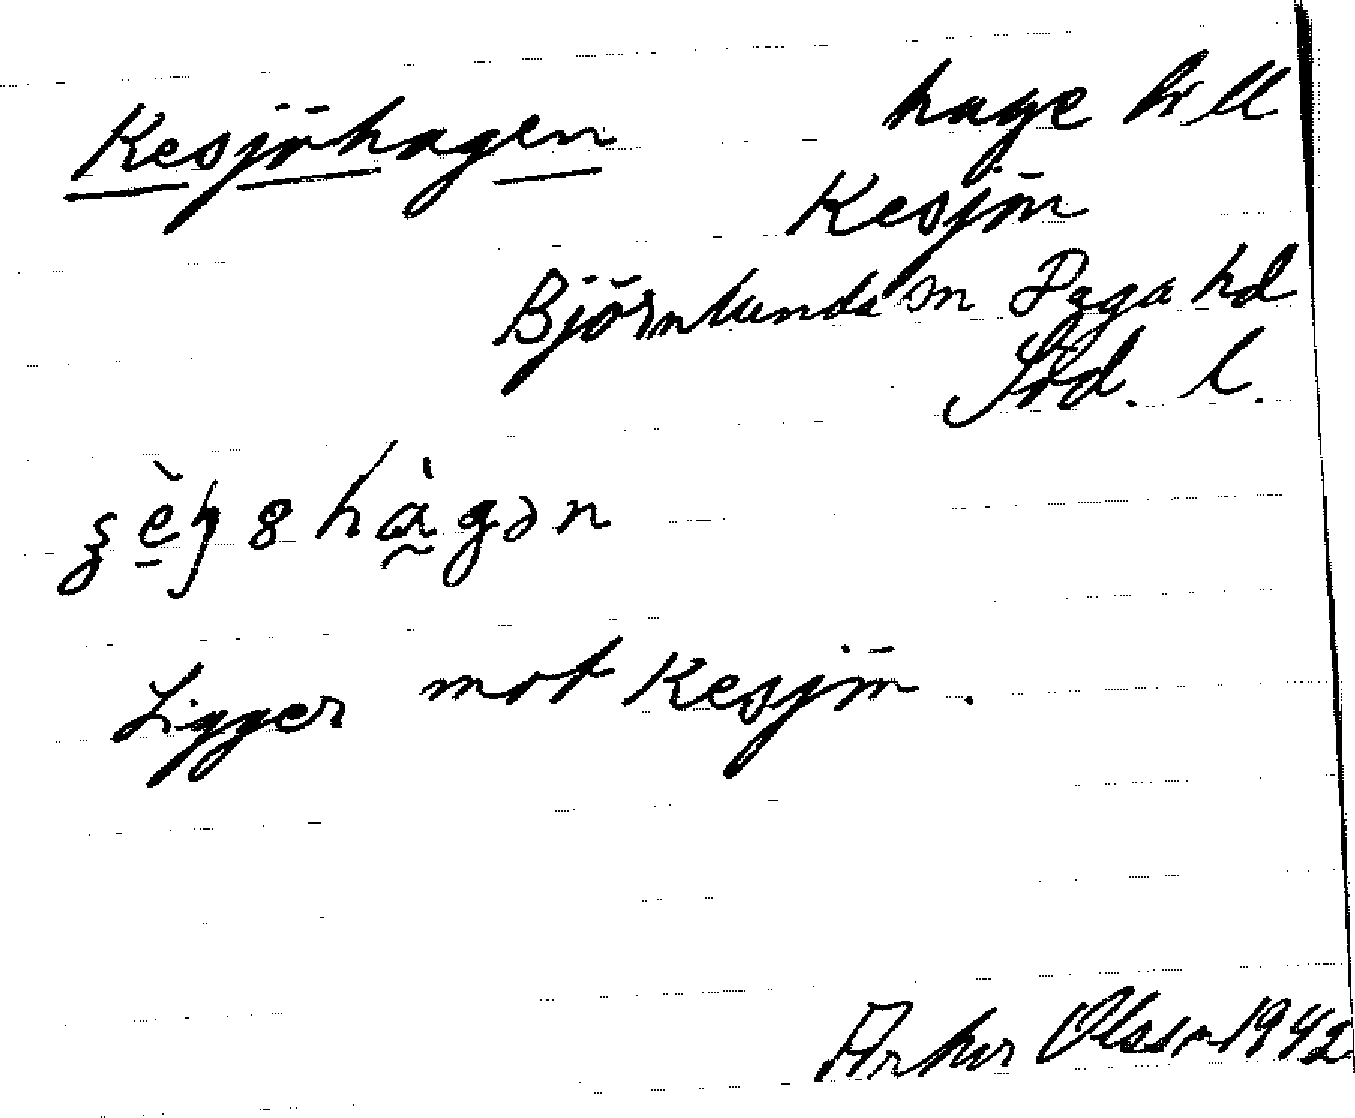 Kesjöhagen hage till
Kesjön
Björnlunda sn Daga hd
Srd. l.
Ligger mot Kesjön.
Arthur Olsson 1942